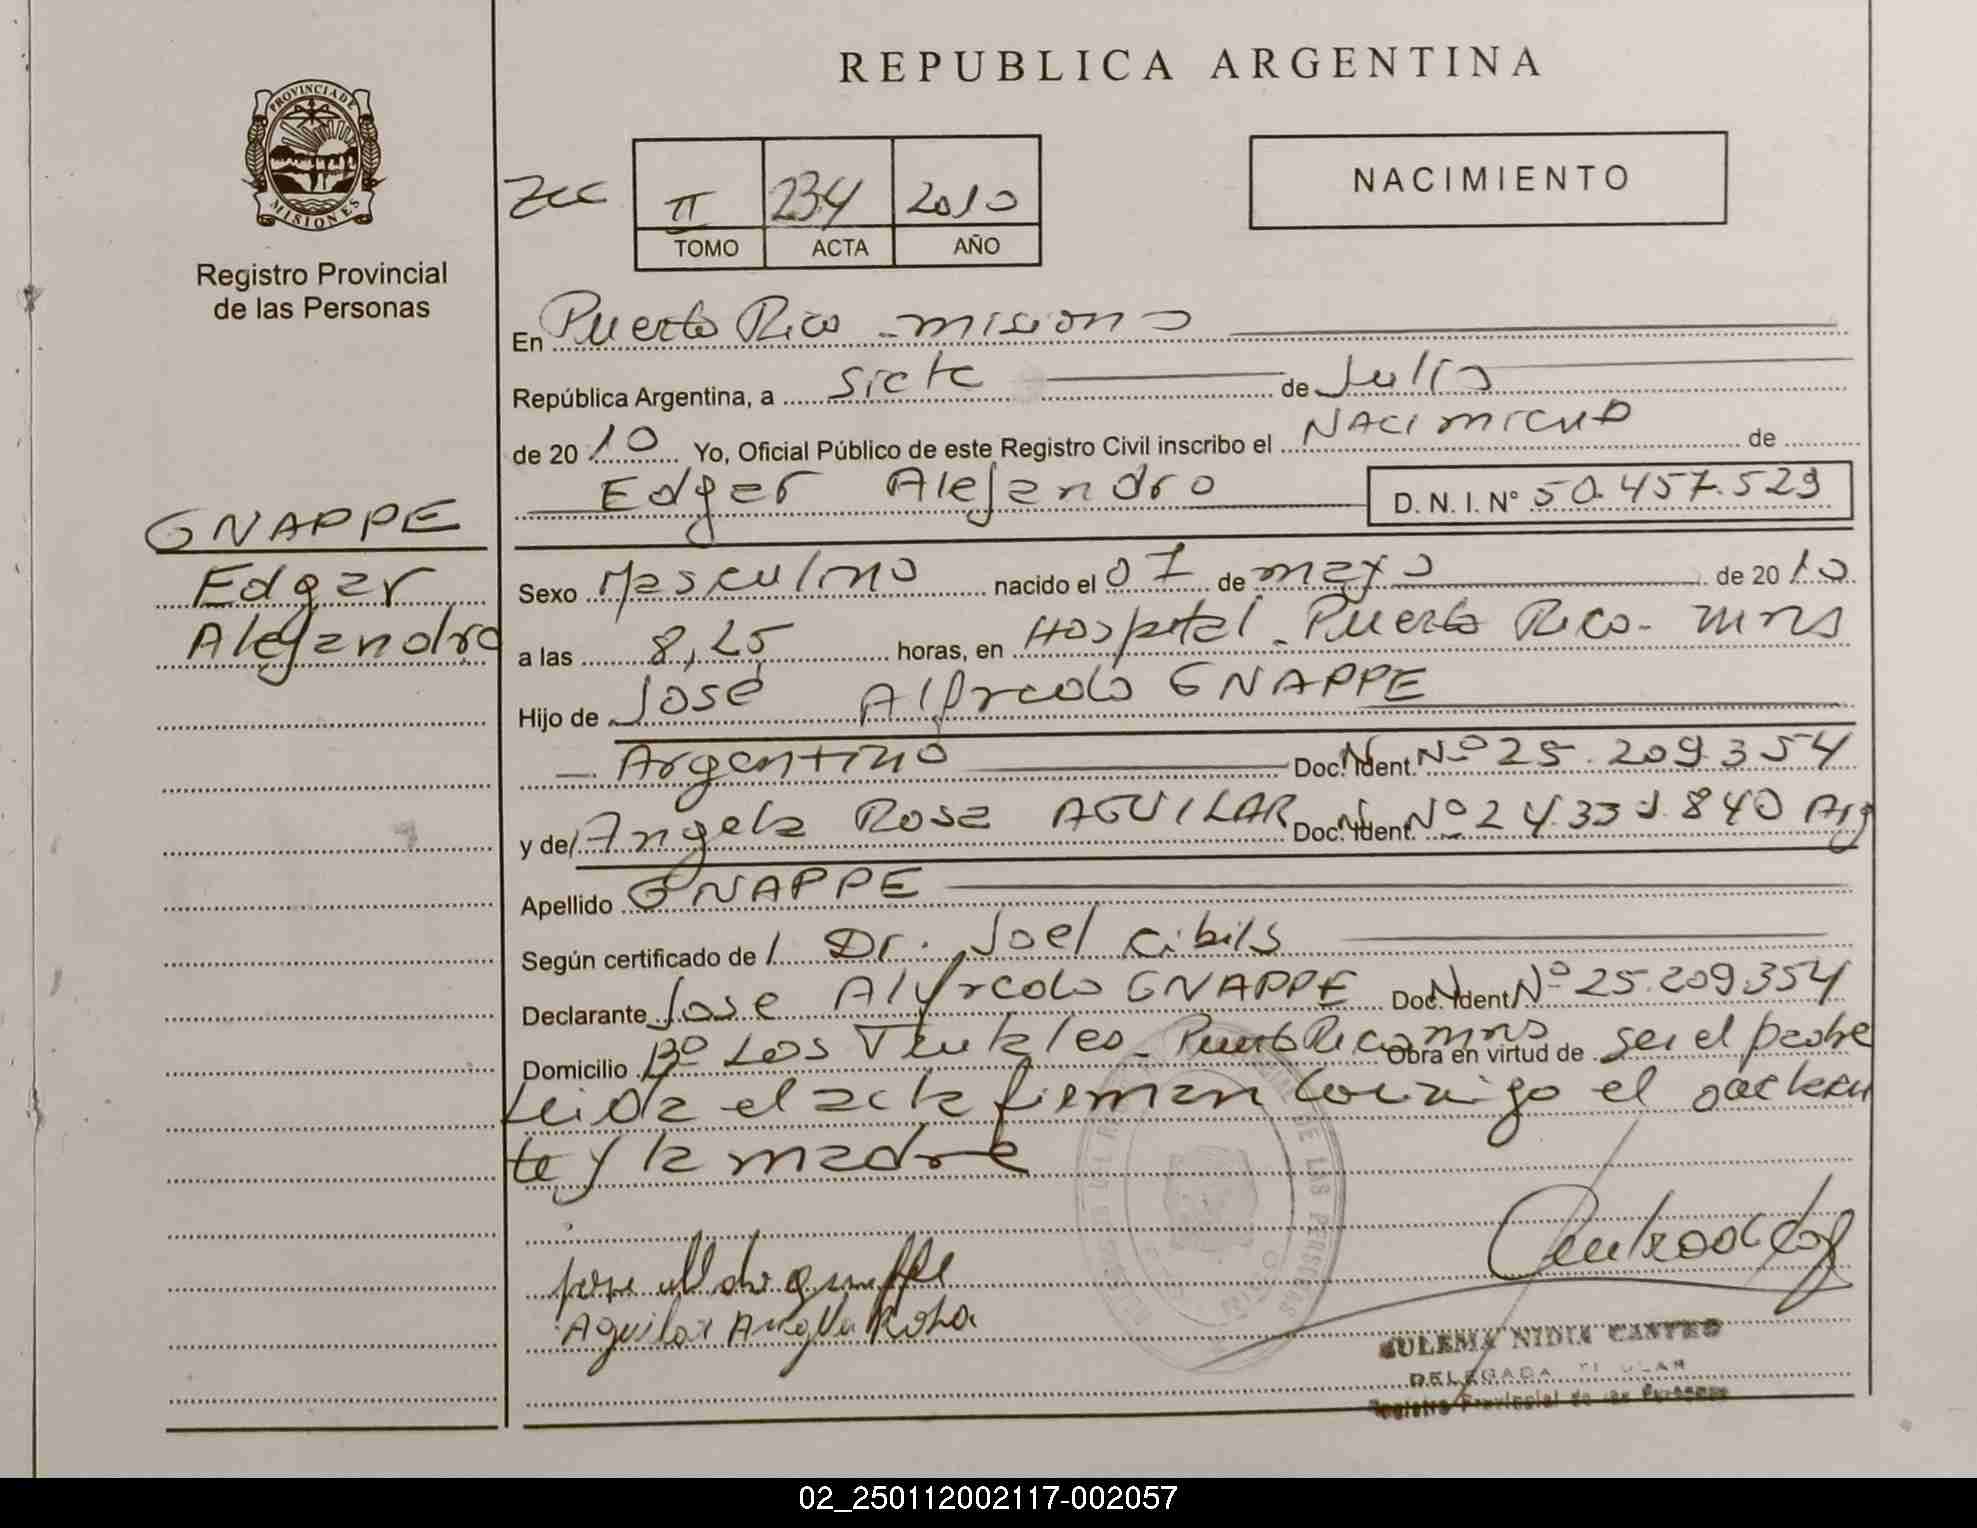 REPUBLICA ARGENTINA
PROVINCIA DE
MISIONES
Registro Provincial
de las Personas
II 234 2010
TOMO ACTA AÑO
NACIMIENTO
En Puerto Rico - misiones
República Argentina, a siete de Julio
de 2010 Yo, Oficial Público de este Registro Civil inscribo el NACImIento de
Edgar Alejandro D. N. I. Nº 50.457.529
GNAPPE
Edgar
Alejandro
Sexo Masculino nacido el 07 de mayo de 2010
a las 8,25 horas, en Hospital - Puerto Rico - mns
Hijo de José Alfredo GNAPPE
Argentino Doc. Ident. Nº 25.209.354
y de Angela Rosa AGUILAR Doc. Ident. Nº 24.33 .840 Arg
Apellido GNAPPE
Según certificado de Dr. Joel Cibils
Declarante Jose Alfredo GNAPPE Doc. Ident Nº 25.209.354
Domicilio Bº Los - Puerto Rico mns Obra en virtud de ser el padre
Leida el acta firman conmigo el declaran
te y la madre
Aguilar Angela Rosa
ZULEMA NIDIA CASTRO
DELEGADA TITULAR
Registro Provincial de las Personas
02_250112002117-002057